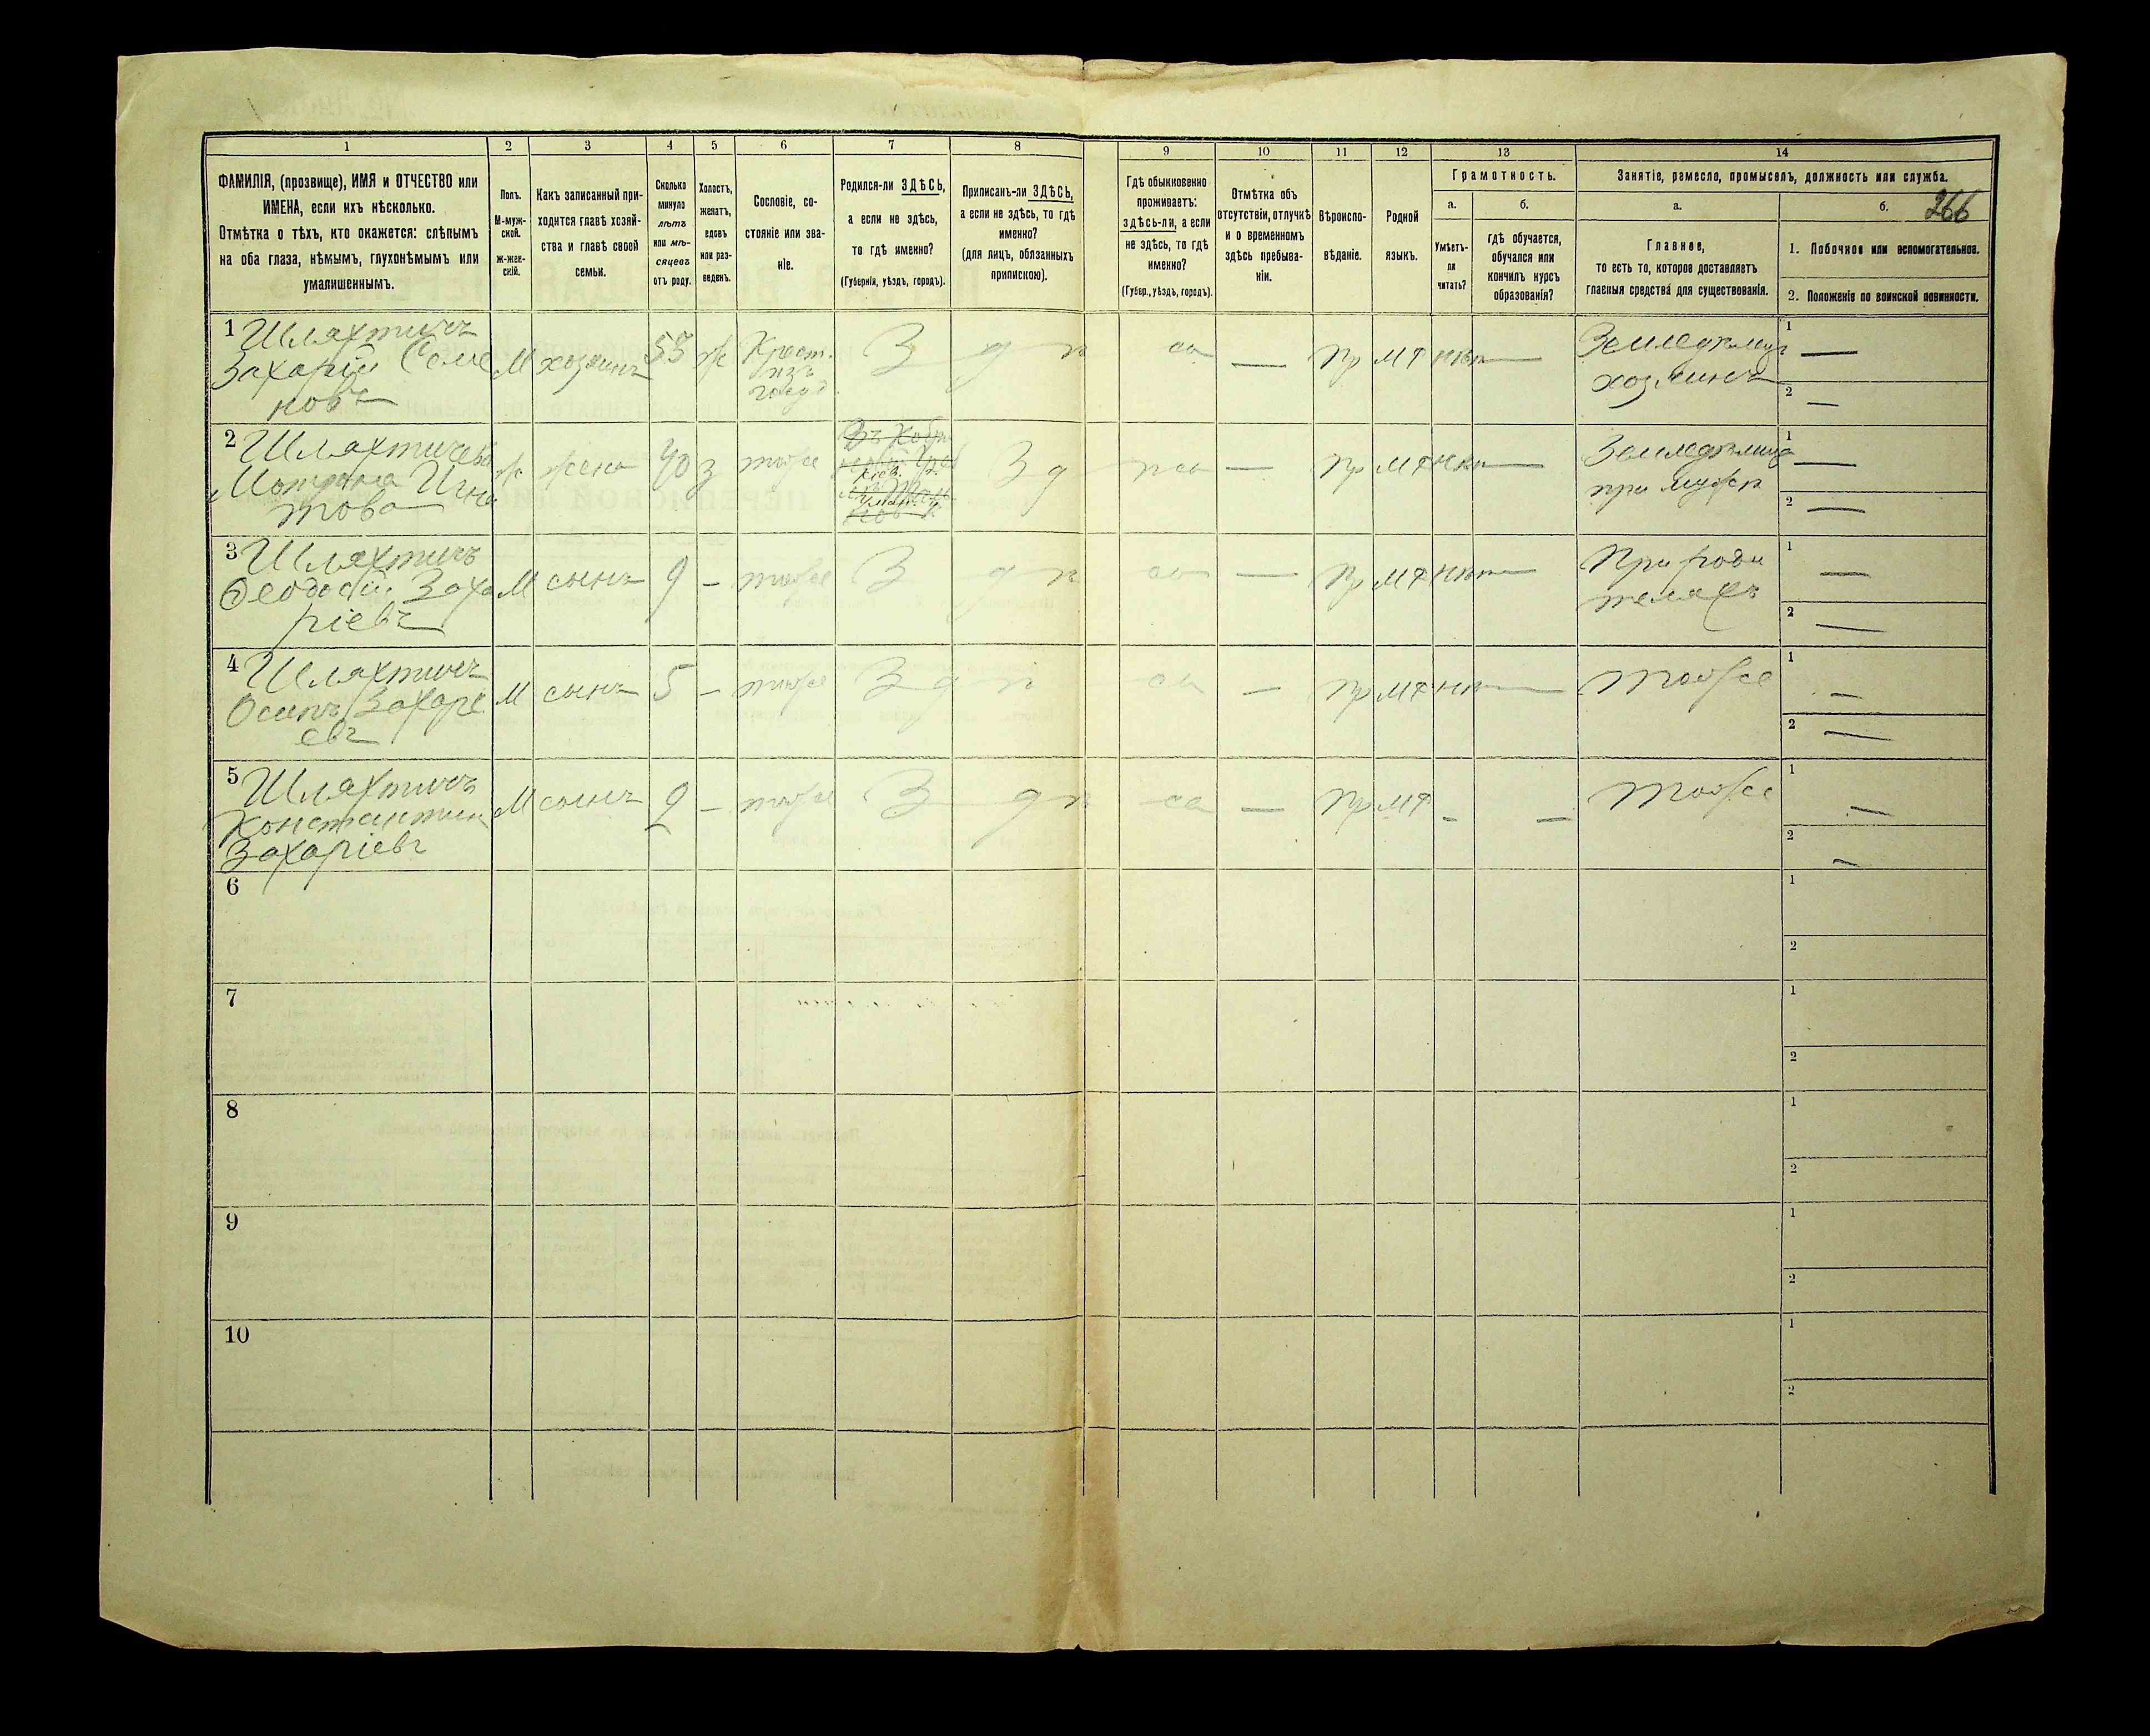 266
1 2 3 4 5 6 7 8 9 10 11 12 13 14
ФАМИЛІЯ, (прозвище), ИМЯ и ОТЧЕСТВО или
ИМЕНА, если ихъ нѣсколько.
Отмѣтка о тѣхъ, кто окажется: слѣпымъ
на оба глаза, нѣмымъ, глухонѣмымъ или
умалишеннымъ.
Полъ.
М-муж-
ской.
Ж-жен-
скій.
Какъ записанный при-
ходится главѣ хозяй-
ства и главѣ своей
семьи.
Сколько
минуло
лѣтъ
или мѣ-
сяцевъ
отъ роду.
Холостъ,
женатъ,
вдовъ
или раз-
веденъ.
Сословіе, со-
стояніе или зва-
ніе.
Родился-ли ЗДѢСЬ,
а если не здѣсь,
то гдѣ именно?
(Губернія, уѣздъ, городъ).
Приписанъ-ли ЗДѢСЬ,
а если не здѣсь, то гдѣ
именно?
(для лицъ, обязанныхъ
припискою).
Гдѣ обыкновенно
проживаетъ:
здѣсь-ли, а если
не здѣсь, то гдѣ
именно?
(Губер., уѣздъ, городъ).
Отмѣтка объ
отсутствіи, отлучкѣ
и о временномъ
здѣсь пребыва-
ніи.
Вѣроиспо-
вѣданіе.
Родной
языкъ.
Грамотность.
а.
Умѣетъ-
ли
читать?
б.
гдѣ обучается,
обучался или
кончилъ курсъ
образованія?
Занятіе, ремесло, промыселъ, должность или служба.
а.
Главное,
то есть то, которое доставляетъ
главныя средства для существованія.
б.
1. Побочное или вспомогательное.
2. Положеніе по воинской повинности.
1 Шляхтичъ
Захарій Семе
новъ
М хозяинъ 55 ж
Крест.
изъ
З д п сь — пр мл нѣт —
Земледѣлец
хозяинъ
1 —
2 —
2 Шляхтичева
Мотрона Игна
това
ж жена 40 з тоже
Въ
Кіев. г.
Уман. у.
З д п сь — пр мл нѣт —
Земледѣлица
при мужѣ
1 —
2 —
3 Шляхтичъ
Ѳеодосій Заха
ріевъ
М сынъ 9 — тоже З д п сь — пр мл нѣт —
При роди
теляхъ
1 —
2 —
4 Шляхтичъ
Осипъ Захарі
евъ
М сынъ 5 — тоже З д п сь — пр мл нѣт — тоже
1 —
2 —
5 Шляхтичъ
Константин
Захаріевъ
М сынъ 2 — тоже З д п сь — пр мл - — тоже
1 —
2 —
6
1
2
7
1
2
8
1
2
9
1
2
10
1
2